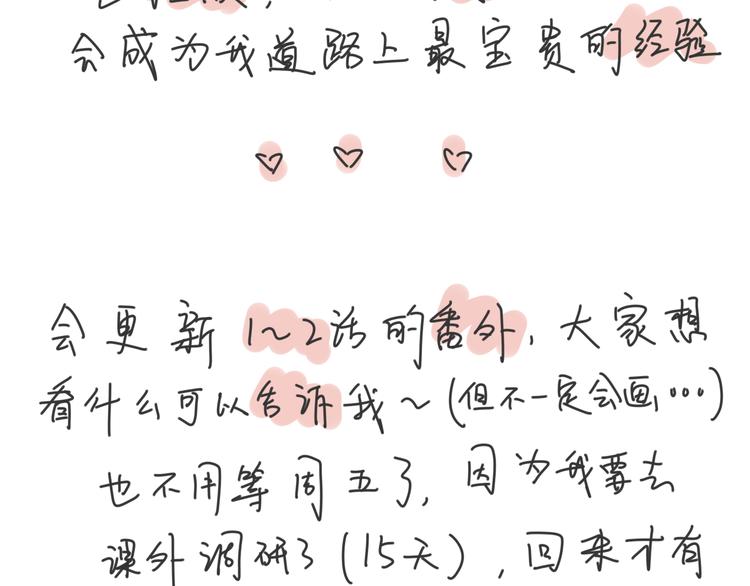 会成为我道路上最宝贵的经验
会更新1~2话的番外,大家想
看什么可以告诉我~(但不一定会画…)
也不用等周五了,因为我要去
课外调研了(15天),回来才有